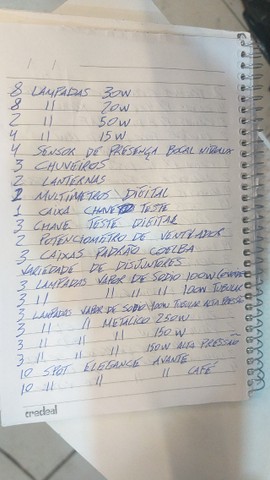 8 LAMPADAS 30W
8 11 20W
2 11 50W
4 11 15W
4 SENSOR DE PRESENÇA BOCAL
3 CHUVEIROS
2 LANTERNAS
2 MULTIMETROS DIGITAL
1 CAIXA CHAVE TESTE
3 CHAVE TESTE DIGITAL
2 POTENCIOMETRO DE VENTILADOR
3 CAIXAS PADRÃO COELBA
VARIEDADE DE DISJUNTORES
3 LAMPADAS VAPOR DE SODIO 100W
3 11 11 11 11 100W TUBULAR
3 LAMPADAS VAPOR DE SODIO 100W TUBULAR ALTA
3 11 11 METALICO 250W
3 11 11 11 150W
3 11 11 11 150W ALTA PRESSÃO
10 SPOT ELEGANCE AVANTE
10 11 11 11 CAFÉ
credeal